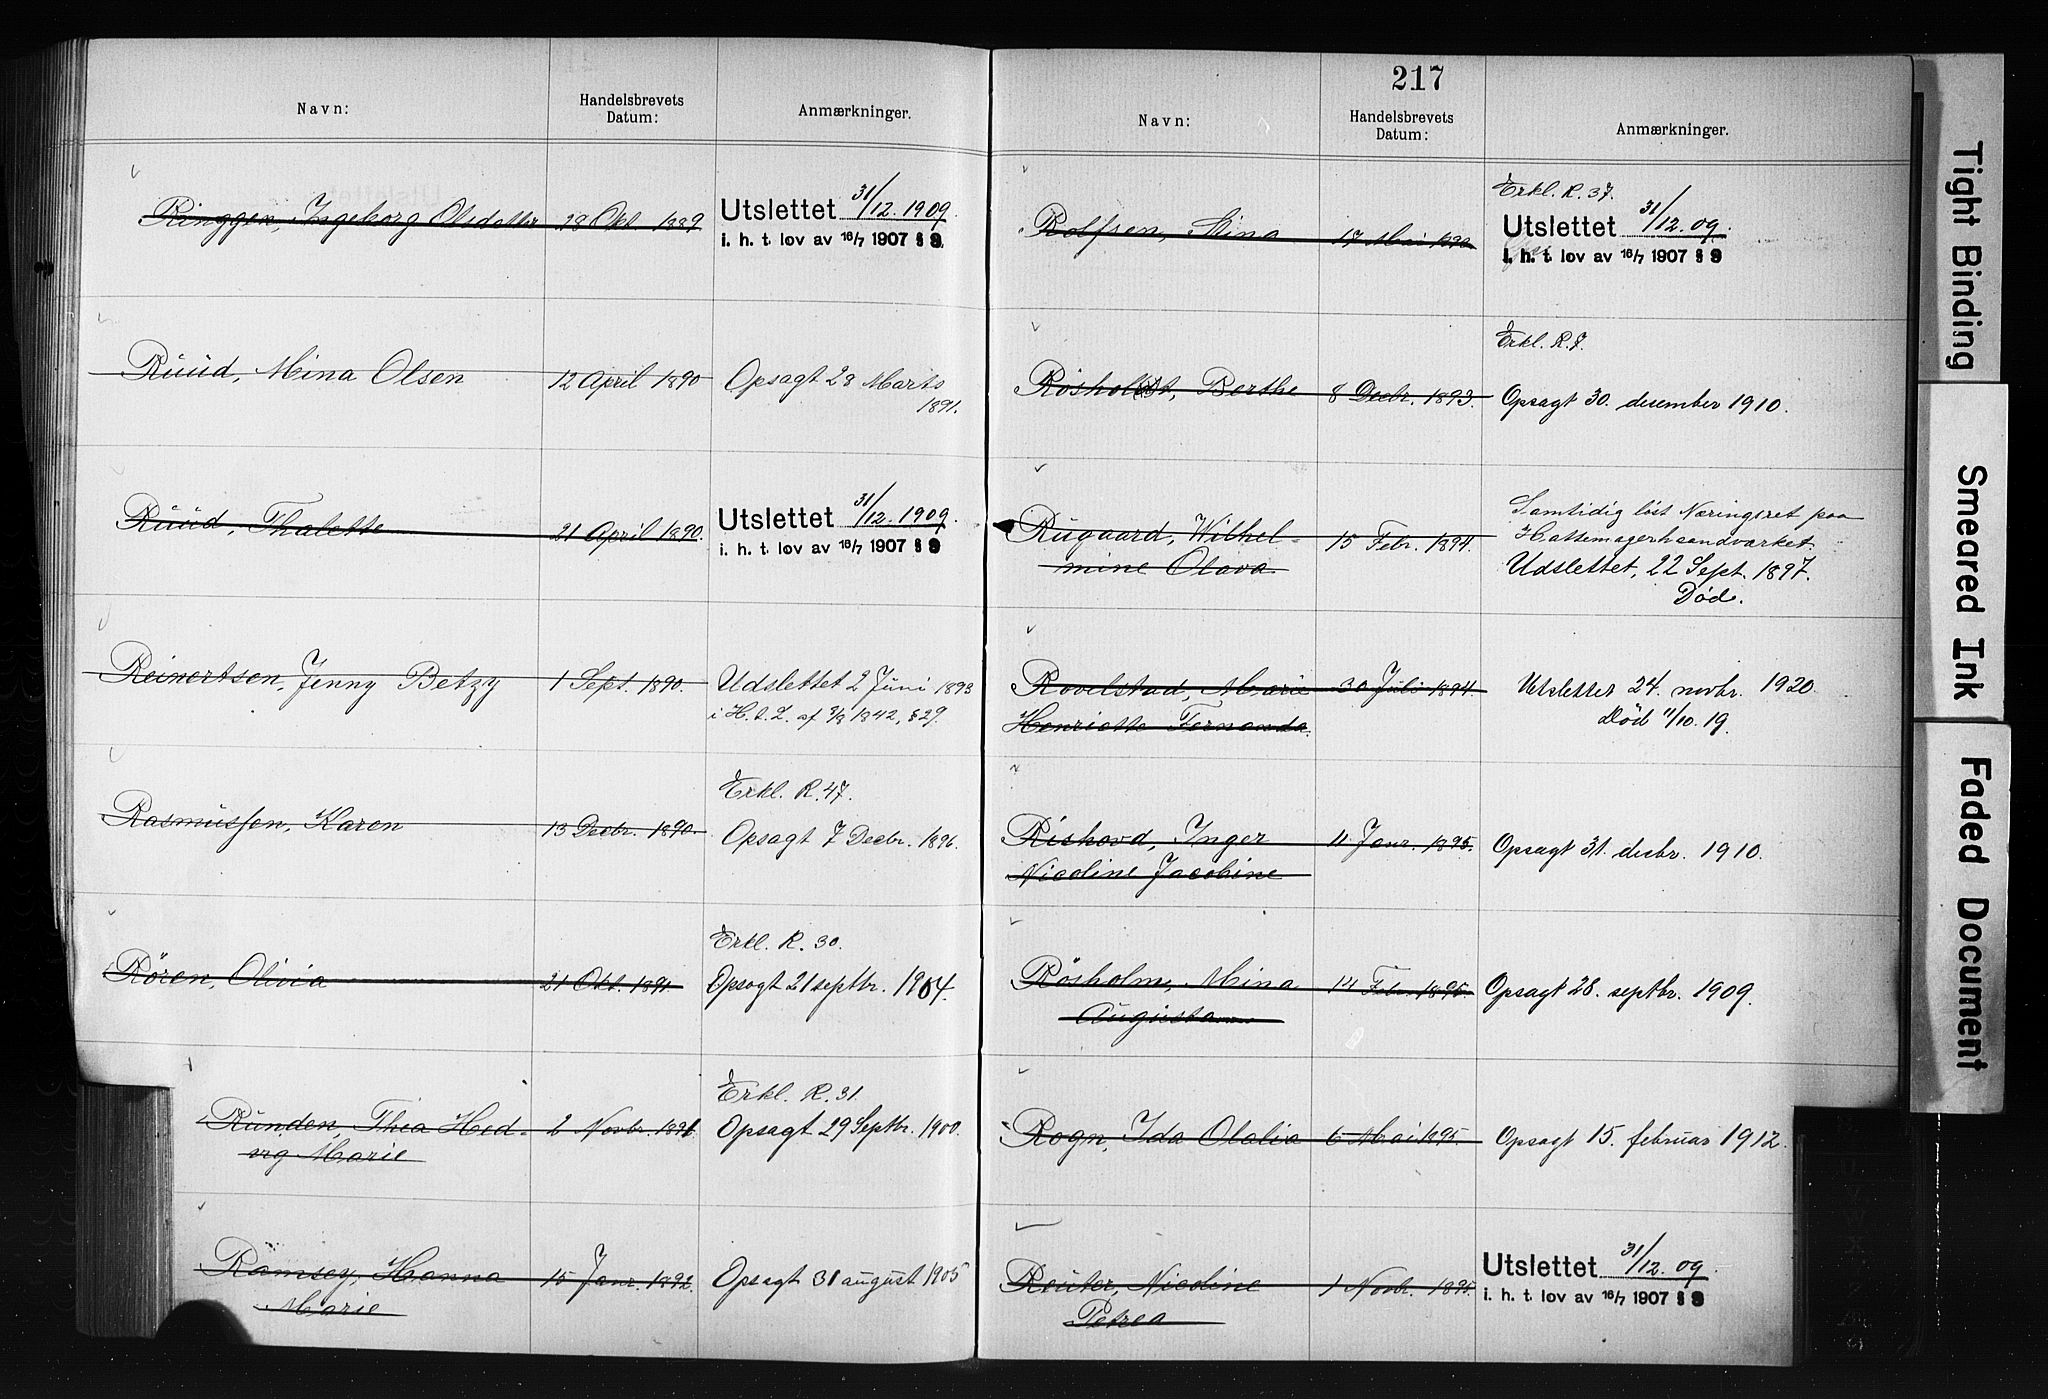 Navn:
Handelsbrevets
Datum:
Anmærkninger.
Ringgen, Ingeborg Olsdatter
28 Okt. 1889
Utslettet 31/12. 1909.
i. h. t. lov av 16/7 1907 § 9.
Ruud, Mina Olsen
12 April 1890
Opsagt 28 Marts
1891.
Ruud, Thalette
21 April 1890.
Utslettet 31/12. 1909.
i. h. t. lov av 16/7 1907 § 9
Reinertsen, Jenny Betzy
1 Sept. 1890.
Udslettet 2 Juni 1893
i H. t. L. af 8/8 1842, § 29.
Rasmussen, Karen
13 Decbr. 1890.
Erkl. R. 47.
Opsagt 7 Decbr. 1896.
Røren, Olivia
21 Okt. 1891.
Erkl. R. 30.
Opsagt 21 septbr. 1904.
Runden Thea Hed-
vig Marie
2 Novbr. 1891
Erkl. R. 31.
Opsagt 29 Septbr. 1900.
Ramsey, Hanna
Marie
15 Janr. 1892.
Opsagt 31 august 1905
217
Navn:
Handelsbrevets
Datum:
Anmærkninger.
Rolfsen, Mina
17 Mai
Erkl. R. 37.
Utslettet 31/12. 09.
i. h. t. lov av 16/7 1907 § 9
Røsholdt, Berthe
8 Decbr. 1893.
Erkl. R. 7.
Opsagt 30. desember 1910.
Rugaard, Wilhel-
mine Olava.
15 Febr. 1894.
Samtidig løst Næringsret paa
Hattemagerhaandværket.
Udslettet, 22 Sept. 1897.
Død.
Rovelstad, Marie
Henriette Fernanda.
30 Juli 1894.
Utslettet 24. novbr. 1920.
Død 11/10. 19.
Rishovd, Inger
Nicoline Jacobine
11 Janr. 1895.
Opsagt 31. decbr. 1910.
Røsholm, Mina
Augusta
14 Febr. 1895.
Opsagt 28. septbr. 1909.
Rogn, Ida Olalia
6 Mai 1895.
Opsagt 15. februar 1912.
Reuter, Nicoline
Petrea
1 Novbr. 1895.
Utslettet 31/12. 09.
i. h. t. lov av 16/7 1907 § 9
Tight Binding
Smeared Ink
Faded Document